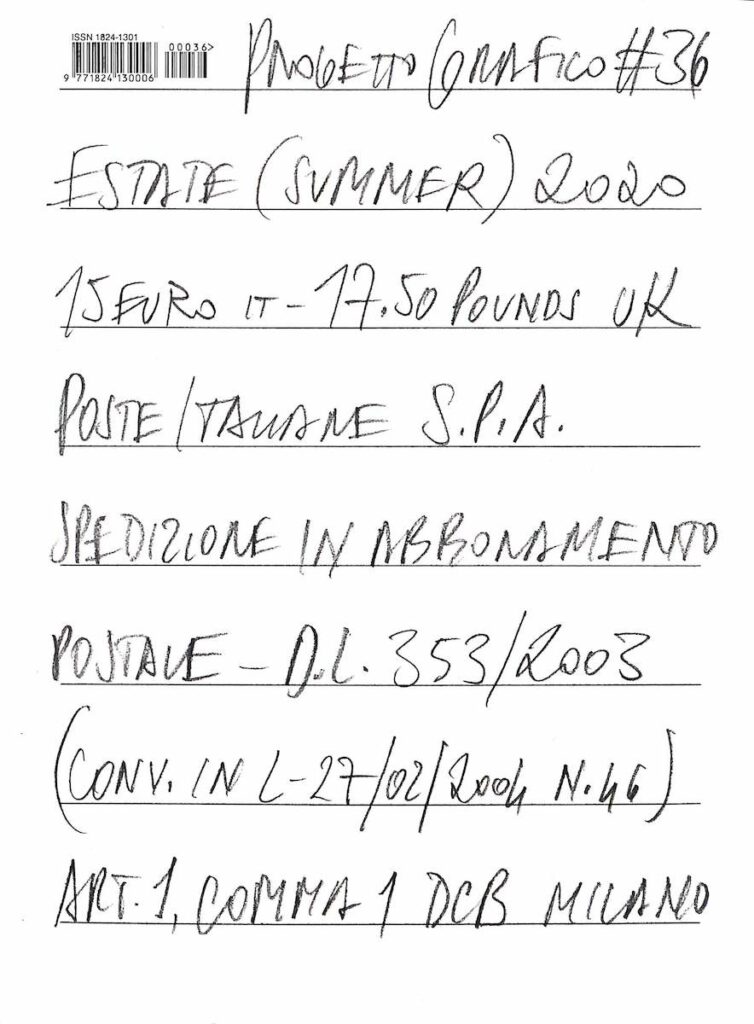 ISSN 1824-1301
00036>
9 771824 130006
PROGETTO GRAFICO #36
ESTATE (SUMMER) 2020
15 EURO IT - 17.50 POUNDS UK
POSTE ITALIANE S.P.A.
SPEDIZIONE IN ABBONAMENTO
POSTALE - D.L. 353/2003
(CONV. IN L - 27/02/2004 N.46)
ART. 1, COMMA 1 DCB MILANO